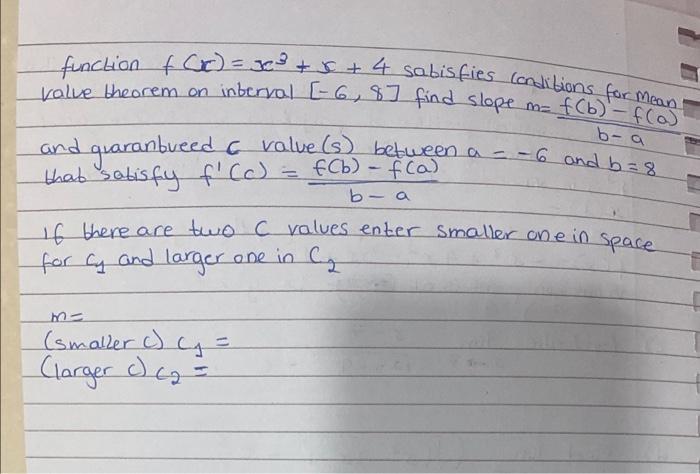 function f(x) = x³ + x + 4 sabisfies conditions for Mean
value theorem on interval [-6, 8] find slope m= f(b) - f(a) / b-a
and guaranbveed c value(s) between a = -6 and b = 8
that satisfy f'(c) = f(b) - f(a) / b - a
If there are two C values enter smaller one in space
for c₁ and larger one in C₂
m=
(smaller c) c₁ =
(larger c) c₂ =